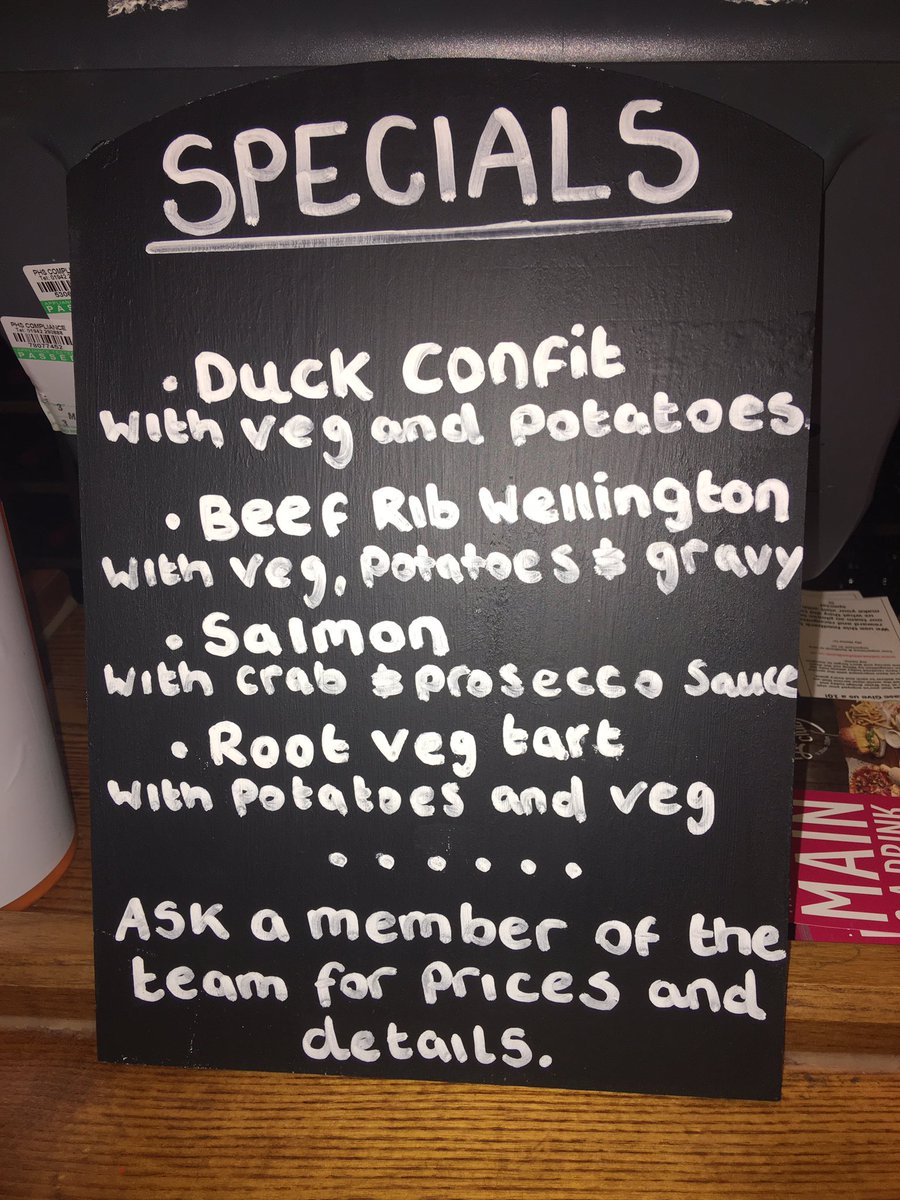 SPECIALS
• Duck Confit
with veg and potatoes
• Beef Rib Wellington
with veg, potatoes & gravy
• Salmon
with crab & prosecco sauce
• Root veg tart
with potatoes and veg
• • • • • •
Ask a member of the
team for prices and
details.
PHS COMPLIANCE
PASSE
PHS COMPLIANCE
Tel: 01942 290888
78077452
PASSE
MAIN
& A DRINK